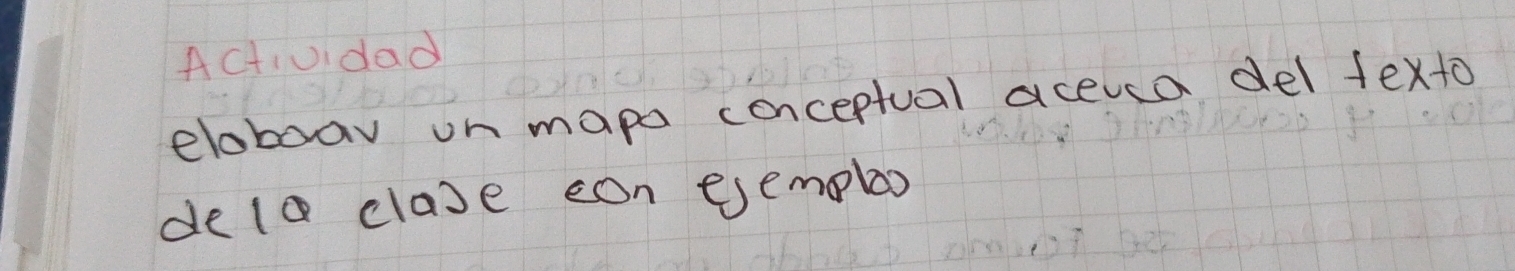 Actividad
elaboar un mapa conceptual acerca del texto
de la clase con ejemplos